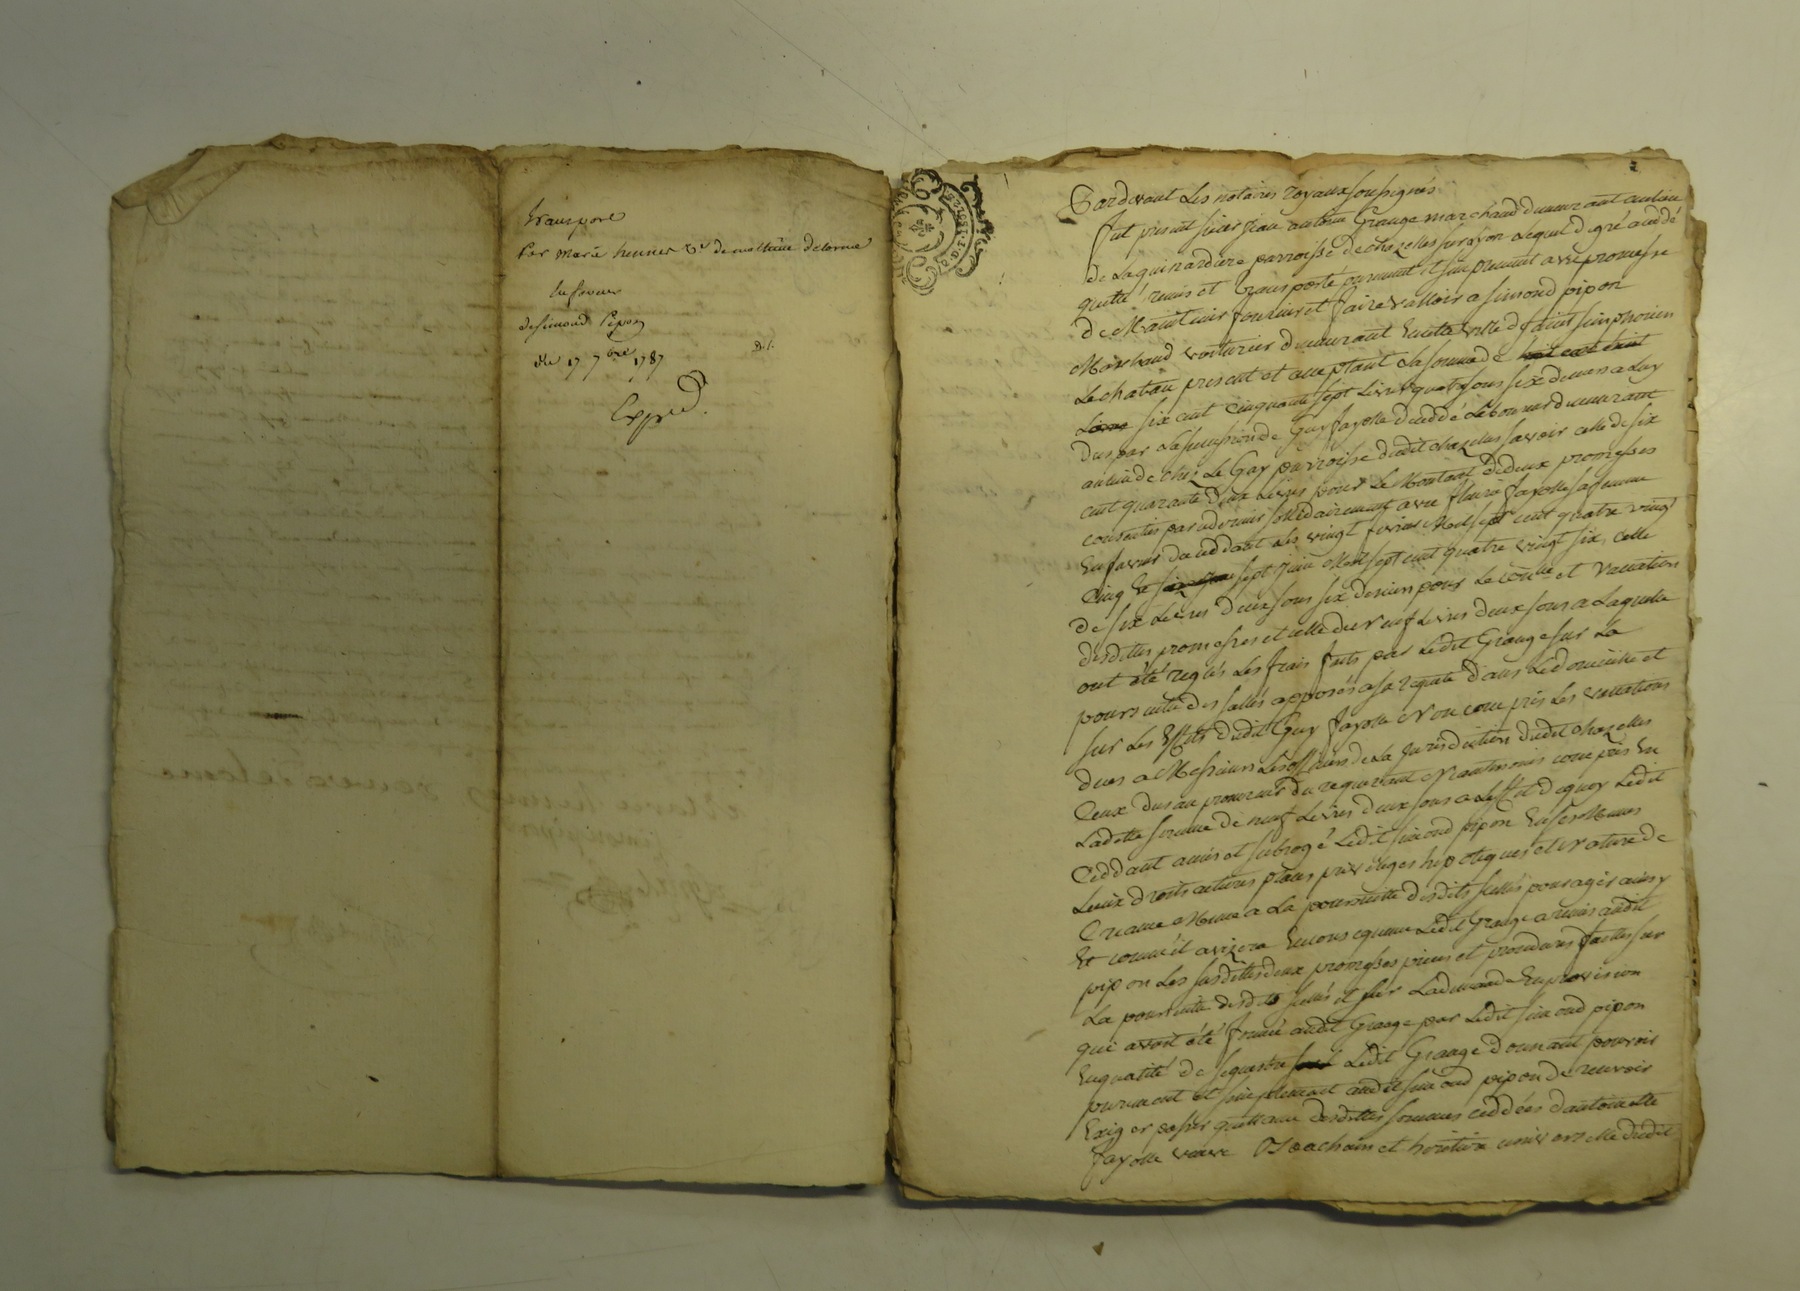 transport
Par marie heunier v.e de mathieu delorme
En faveur
de simond Pipon
du 17 7bre 1787
Expéd.
Pardevant Les notaires royaux soussignés
fut present sieur jean antoine Grange marchand demeurant au lieu
de La quinardiere parroisse de chazelles sur Lyon Lequel de gré a ceddé
quitté remis et transporté purement et simplement avec promesse
de Maintenir fournir et faire valloir a simond pipon
Marchand voiturier demeurant En cette ville de saint simphorien
Le chateau present et acceptant La somme de huit cent
Livres six cent cinquante sept Livres quatre sous six deniers a Luy
Dus par La succession de Guy fayolle
au lieu de chez Le Gay parroisse dudit chazelles savoir celle de six
cent quarante deux Livres pour Le Montant de deux promesses
consenties par ce dernier sollidairement avec fleurie fayolle sa femme
En faveur du ceddant Les vingt fevrier Mil sept cent quatre vingt
Cinq Et sept juin Mil sept cent quatre vingt six, celle
de six Livres deux sous six deniers pour Le contrôle et vaccation
desdittes promesses et celle de neuf Livres deux sous a Laquelle
ont été reglés Les frais faits par Ledit Grange sur La
poursuitte des scellés apposés a sa requete dans Le domicille et
sur Les Effets dudit Guy fayolle Non compris Les vaccations
dues a Messieurs Les officiers de La Jurisdiction dudit chazelles
Ceux dus au procureur du requerant Neantmoins compris En
Laditte somme de neuf Livres deux sous a L'effet de quoy Ledit
Ceddant a mis et subrogé Ledit simond pipon En ses Mêmes
Lieux droits actions places privileges hipoteques et Nature de
Creance Meme a La poursuitte desdits scellés pour agir ainsy
Et comme il avizera En consequence Ledit Grange a remis audit
pipon Les susdittes deux promesses pieces et procedures faittes sur
La poursuitte desdits scellés et sur La demande En provision
qui avoit été formée audit Grange par Ledit simond pipon
En qualité de sequestre Ledit Grange donnant pouvoir
purement et simplement audit simond pipon de recevoir
Exiger passer quittance desdittes sommes ceddées d'antoinette
fayolle veuve Joachain et heritiere universelle dudit